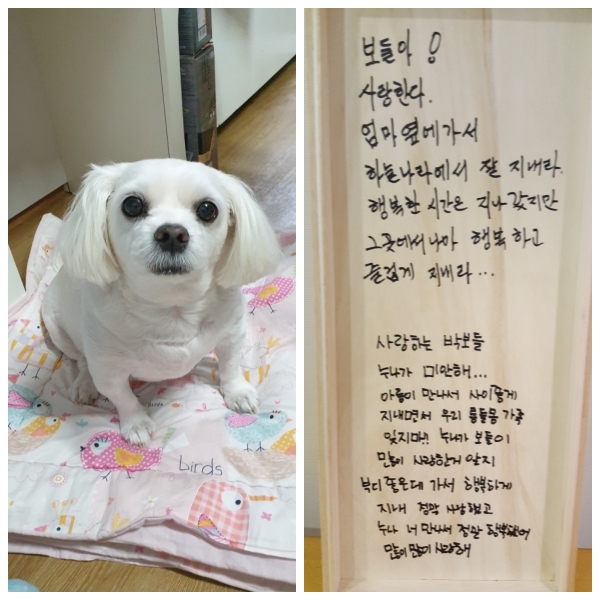 birds
보들아!
사랑한다.
엄마 옆에 가서
하늘나라에서 잘 지내라.
행복한 시간은 지나 갔지만
그곳에서나마 행복하고
즐겁게 지내라...
사랑하는 박보들
누나가 미안해...
아롬이 만나서 사이좋게
지내면서 우리 가족
잊지마!! 누나가 보들이
많이 사랑한거 알지
부디 좋은데 가서 행복하게
지내 정말 사랑했고
누나 너 만나서 정말 행복했어
많이 많이 사랑해